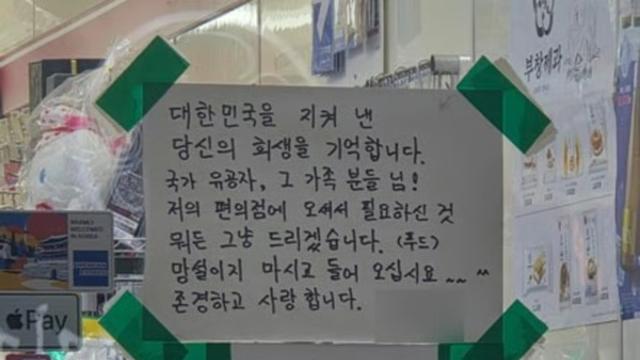 대한민국을 지켜 낸
당신의 희생을 기억합니다.
국가 유공자, 그 가족 분들 님!
저의 편의점에 오셔서 필요하신 것
뭐든 그냥 드리겠습니다. (푸드)
맘설이지 마시고 들어 오십시요~~ ^^
존경하고 사랑합니다.
부창제과
WARMLY
WELCOMED
IN KOREA
Pay